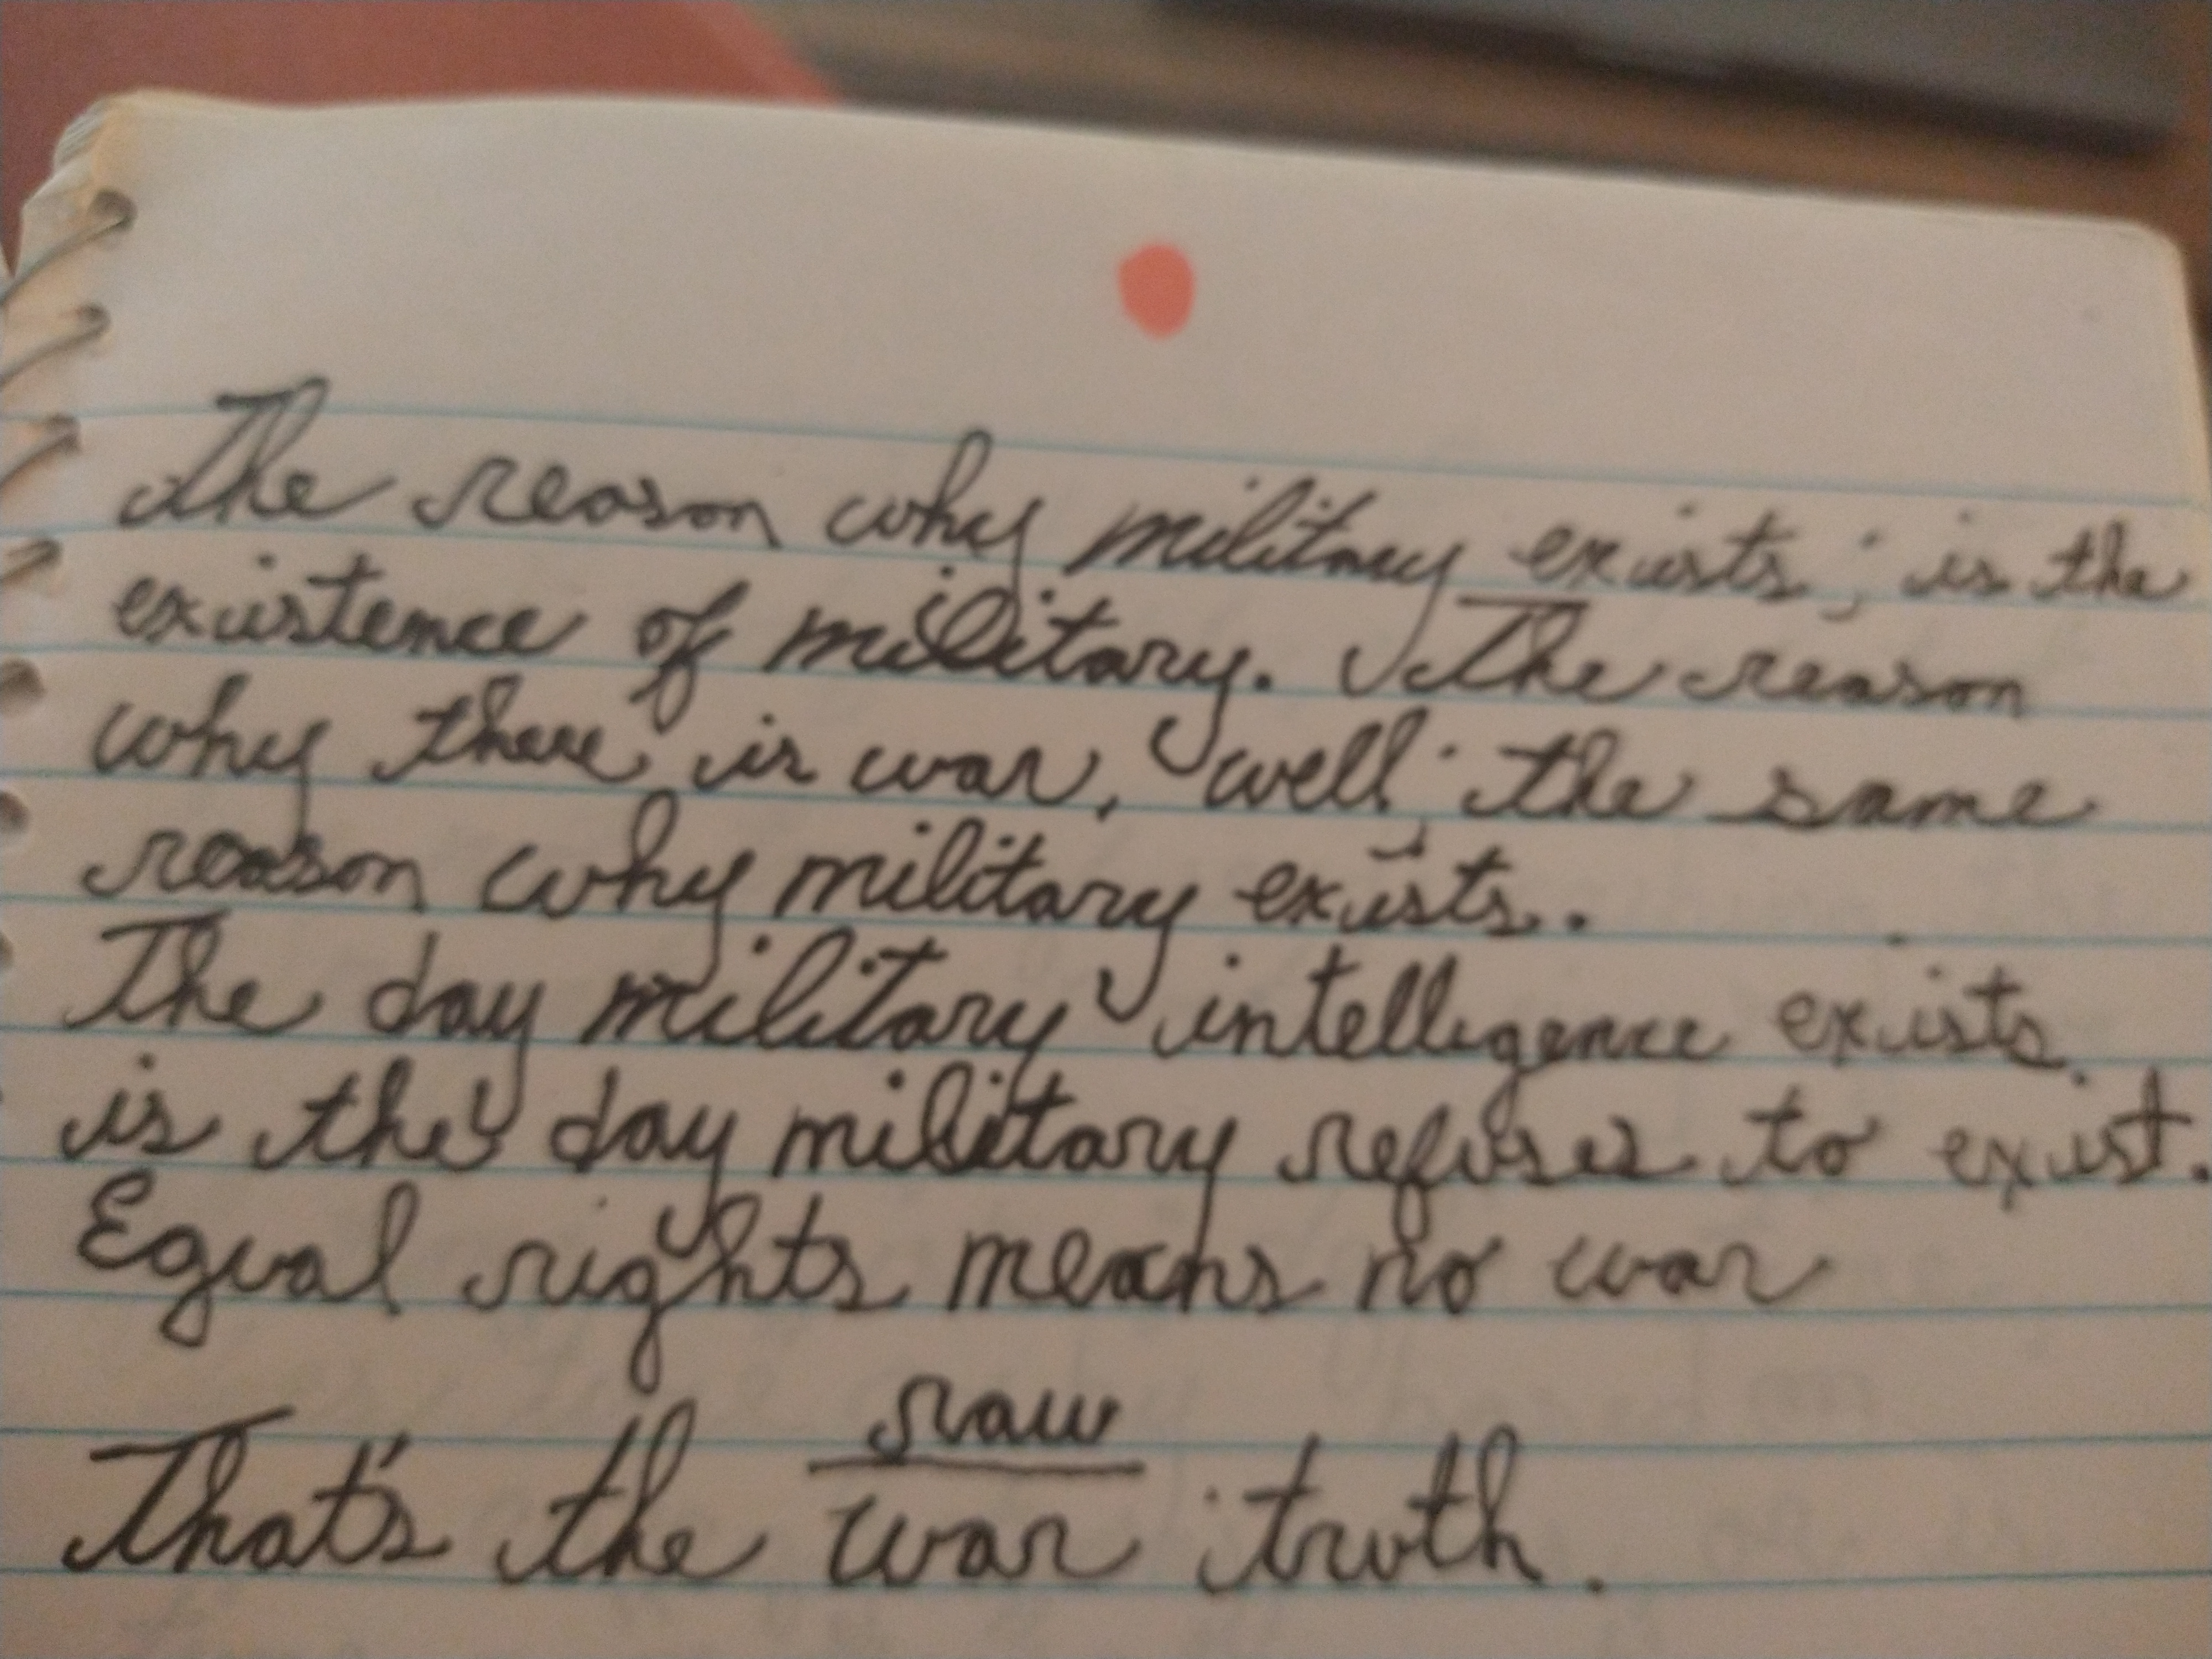 The reason why military exists; is the
existence of military. The reason
why there is war, well; the same
reason why military exists.
The day military intelligence exists,
is the day military refuses to exist.
Equal rights means no war
raw
That's the war truth.